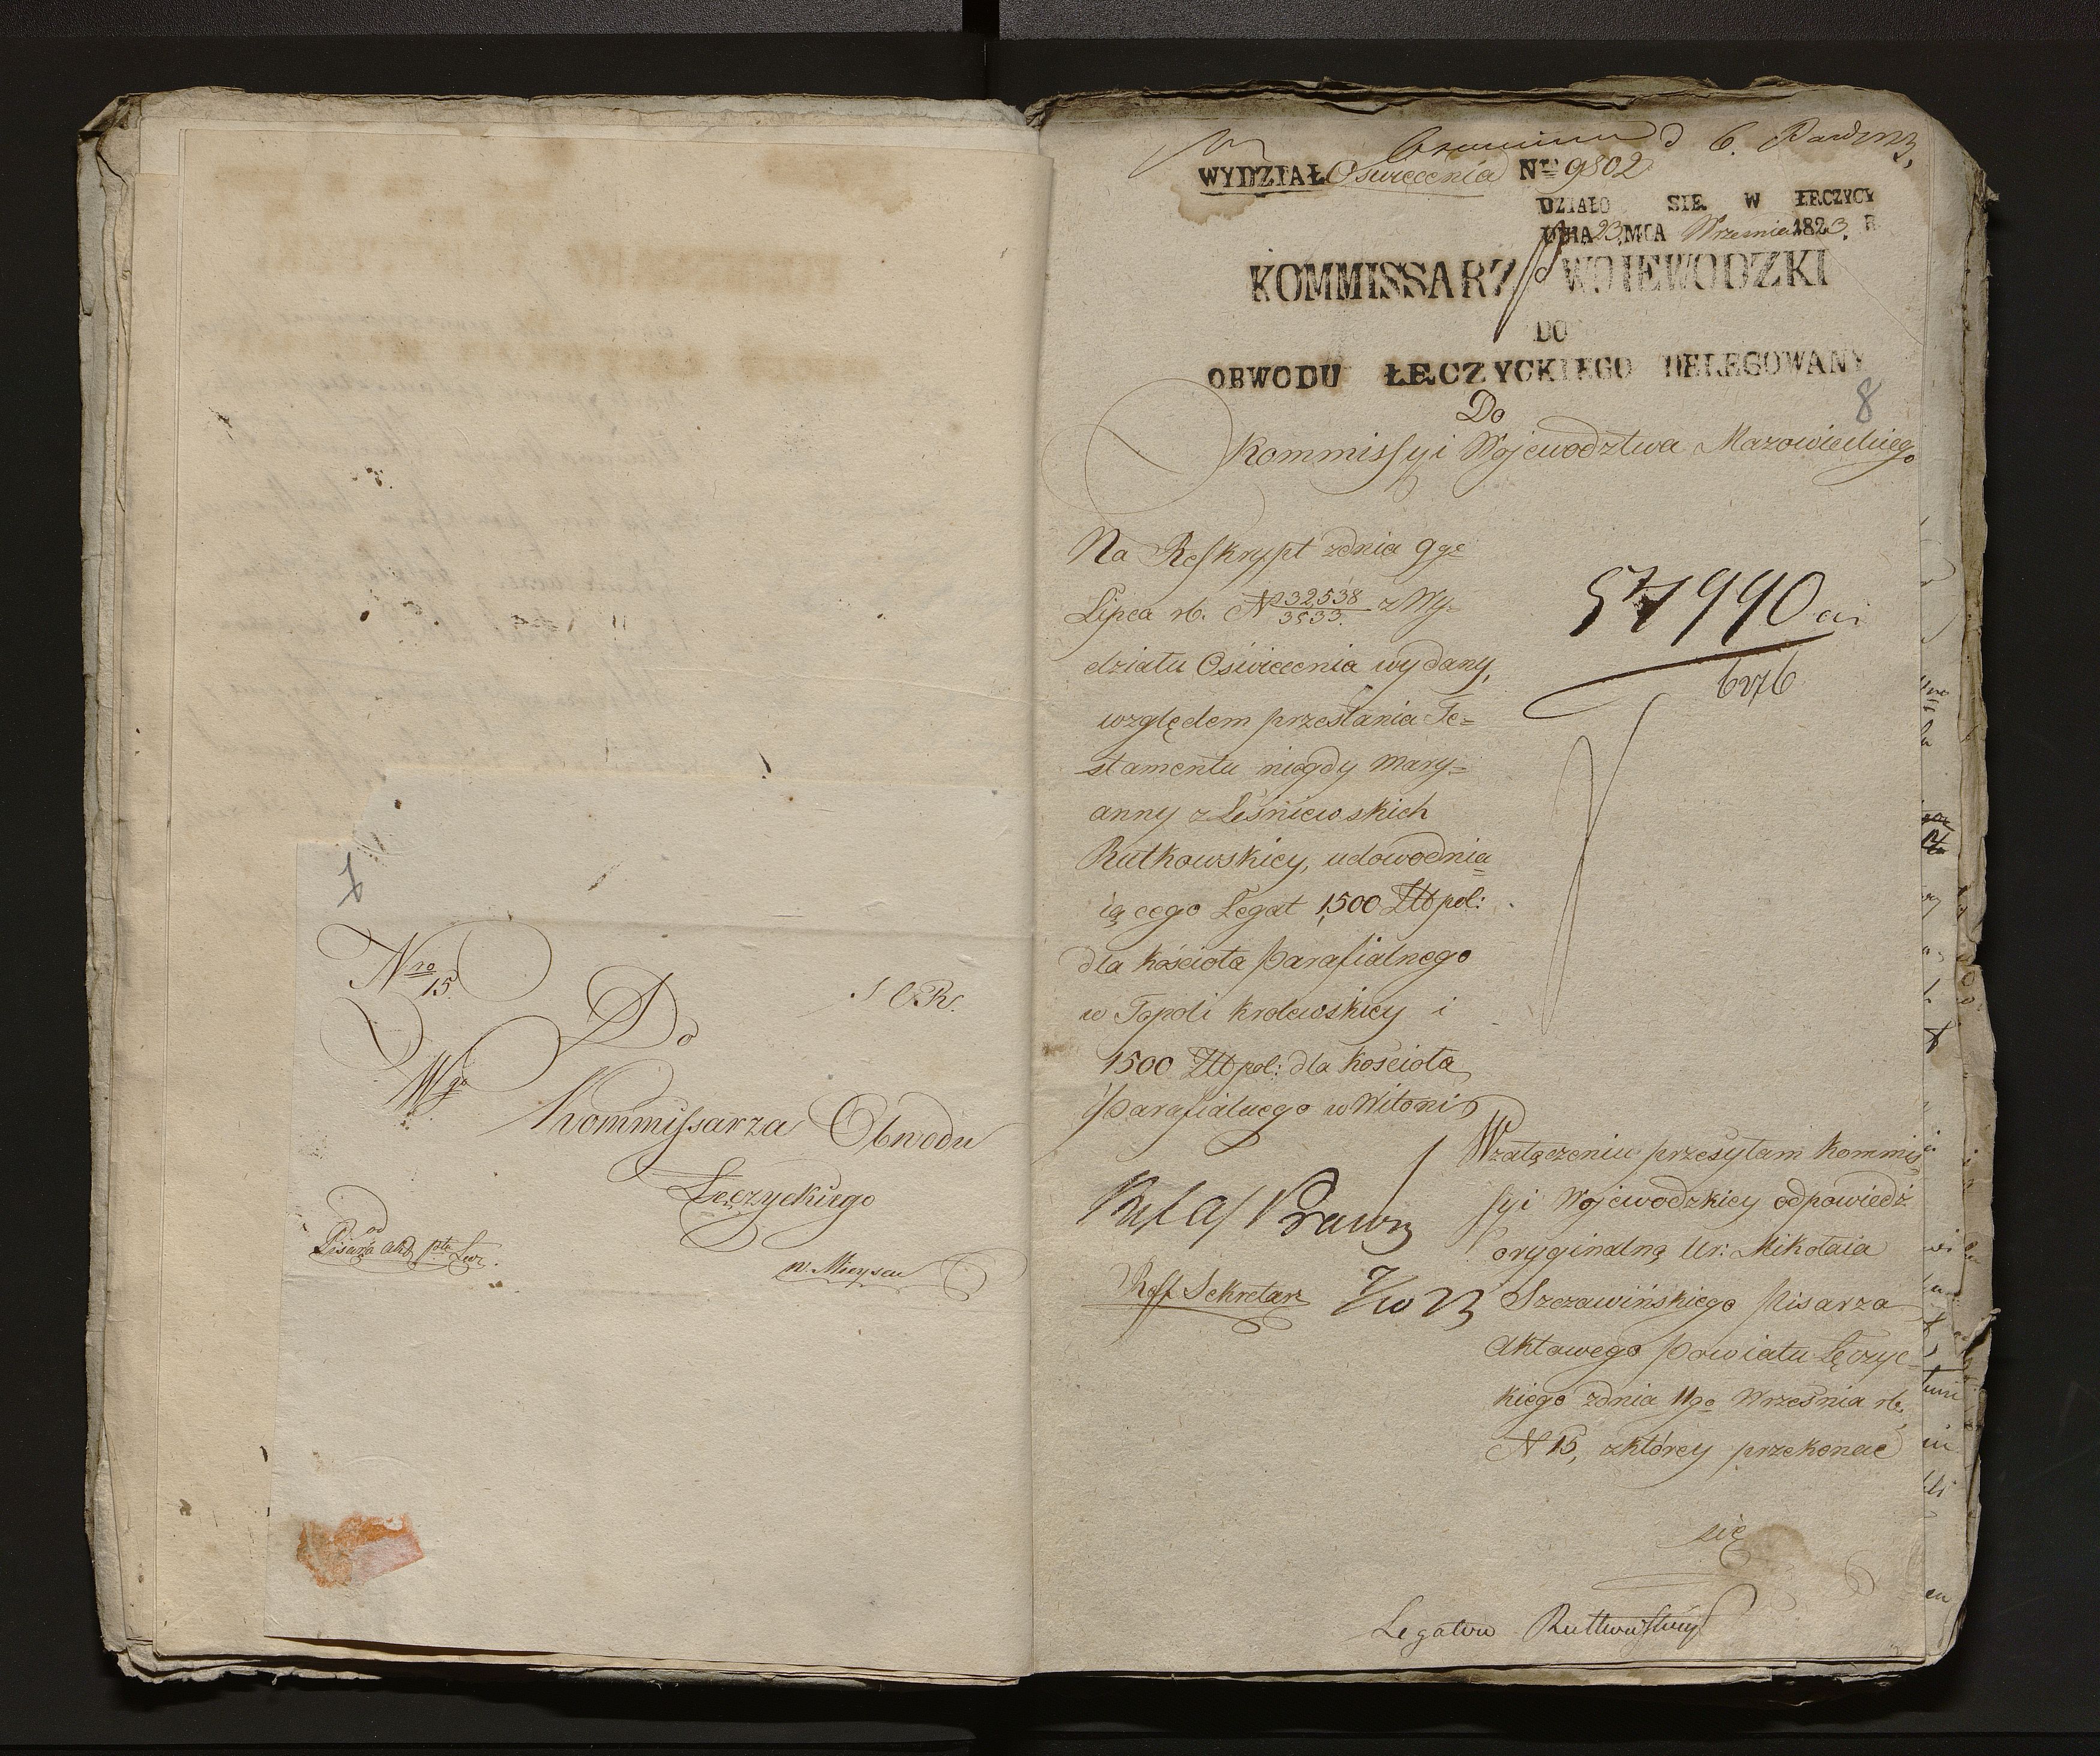 Nro 15.
S O R.
Do
Wgo
Kommissarza Obwodu
Łęczyckiego
od
Pisarza Akt. ptu Łęcz.
w. Mieyscu
6. Paźdz
WYDZIAŁ Oświecenia Nro 9802
DZIAŁO SIĘ W ŁĘCZYCY
DNIA 23 MCA Września 1823. R
KOMMISSARZ WOIEWODZKI
DO
OBWODU ŁĘCZYCKIEGO DELEGOWANY
8
Do
Kommissyi Wojewodztwa Mazowieckiego
Na Reskrypt zdnia 9go
Lipca rb. N 32,538/3533. z Wy-
działu Oświecenia wydany,
względem przesłania Te=
stamentu niegdy Mary=
anny z Leśniewskich
Rutkowskiey, udowodnia=
iącego Legat 1,500 Złł pol:
dla kościoła Parafialnego
w Topoli krolewskiey i
1500 Złł pol: dla Kościoła
Parafialnego w Witoni
57990
Wzałączeniu przesyłam Kommis
syi Wojewodzkiey odpowiedź
oryginalną Ur: Mikołaia
Szczawińskiego Pisarza
Aktowego Powiatu Łęczyc-
kiego zdnia 11go Września rb.
N 15, zktórey przekonać
się
Reff Sekretarz
7/10 23
Legatów Rutkowskiey